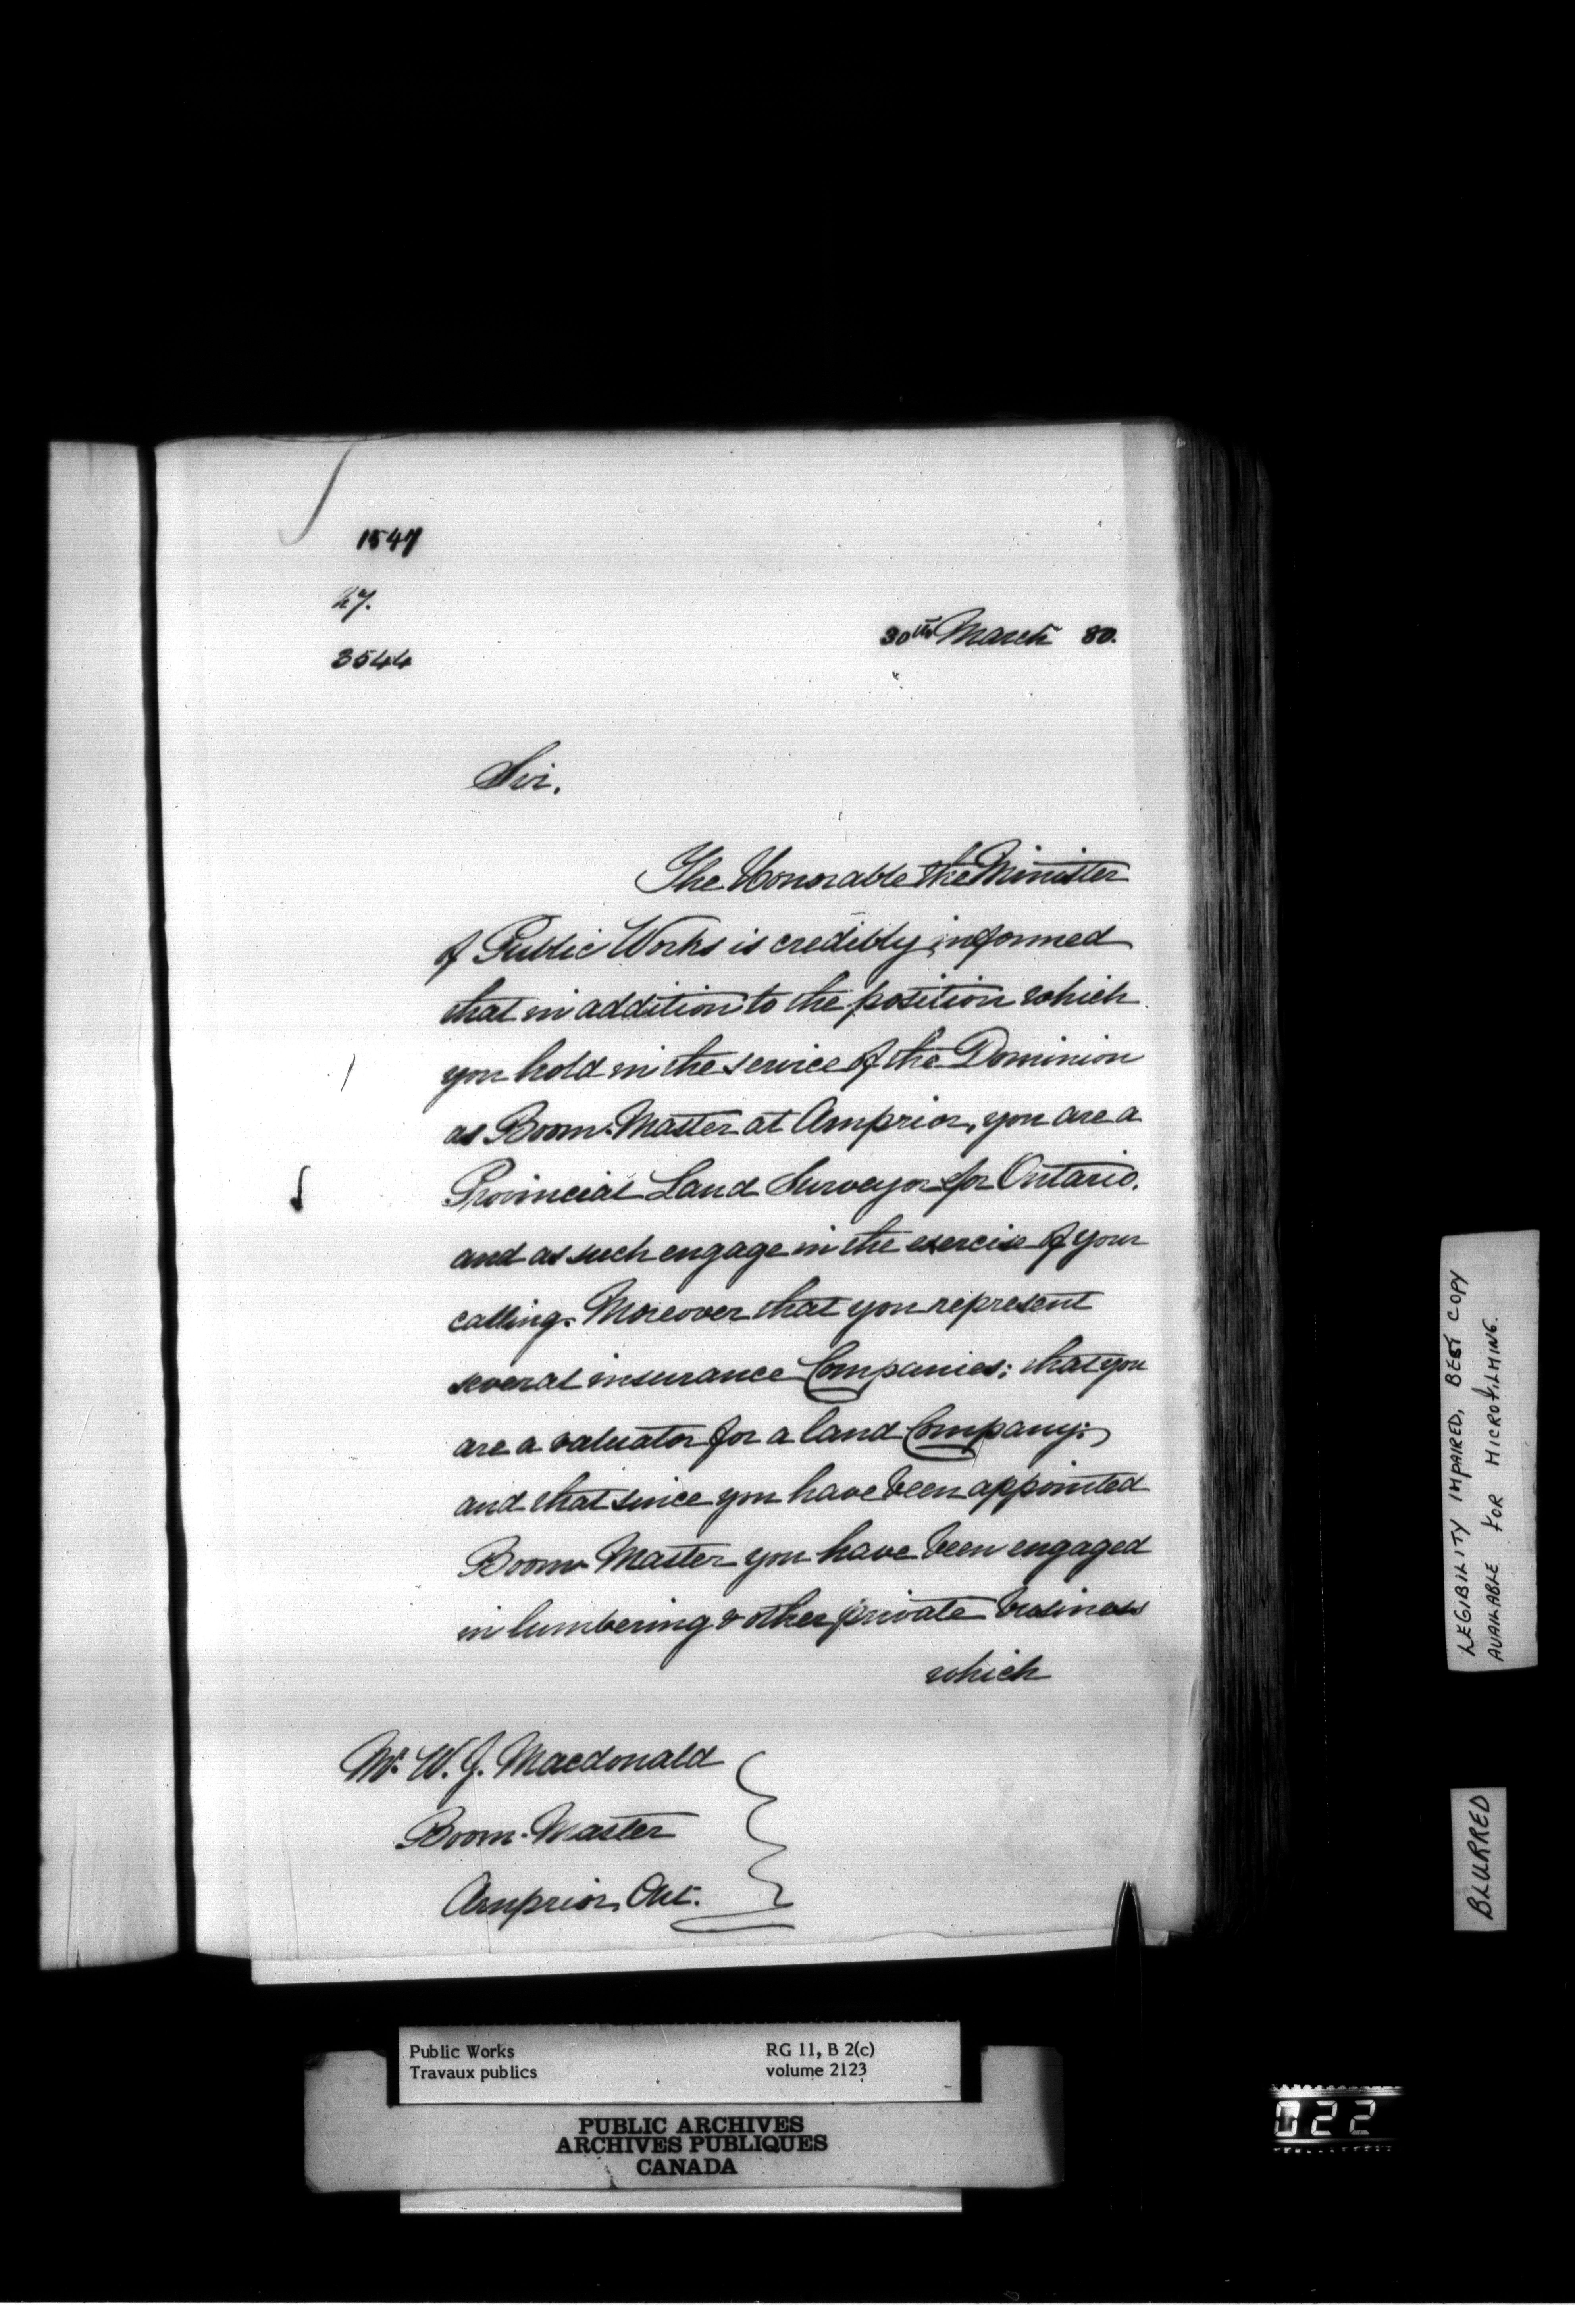 1547
27.
3544
30th March 80.
Sir,
The Honorable the Minister
of Public Works is credibly informed
that in addition to the position which
you hold in the service of the Dominion
as Boom-Master at Arnprior, you are a
Provincial Land Surveyor for Ontario.
and as such engage in the exercise of your
calling. Moreover that you represent
several insurance Companies; that you
are a valuator for a land Company;
and that since you have been appointed
Boom-Master you have been engaged
in lumbering & other private business
which
Mr. W. J. Macdonald
Boom-Master
Arnprior, Ont.
LEGIBILITY IMPAIRED, BEST COPY
AVAILABLE FOR MICROFILMING.
BLURRED
Public Works RG 11, B 2(c)
Travaux publics volume 2123
PUBLIC ARCHIVES
ARCHIVES PUBLIQUES
CANADA
022